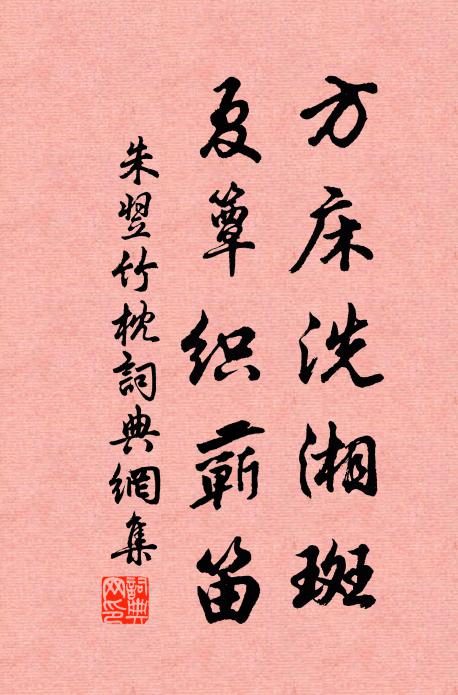 方床洗湘斑
夏簟织蕲笛
朱翌竹枕詞典網集
詞典網印